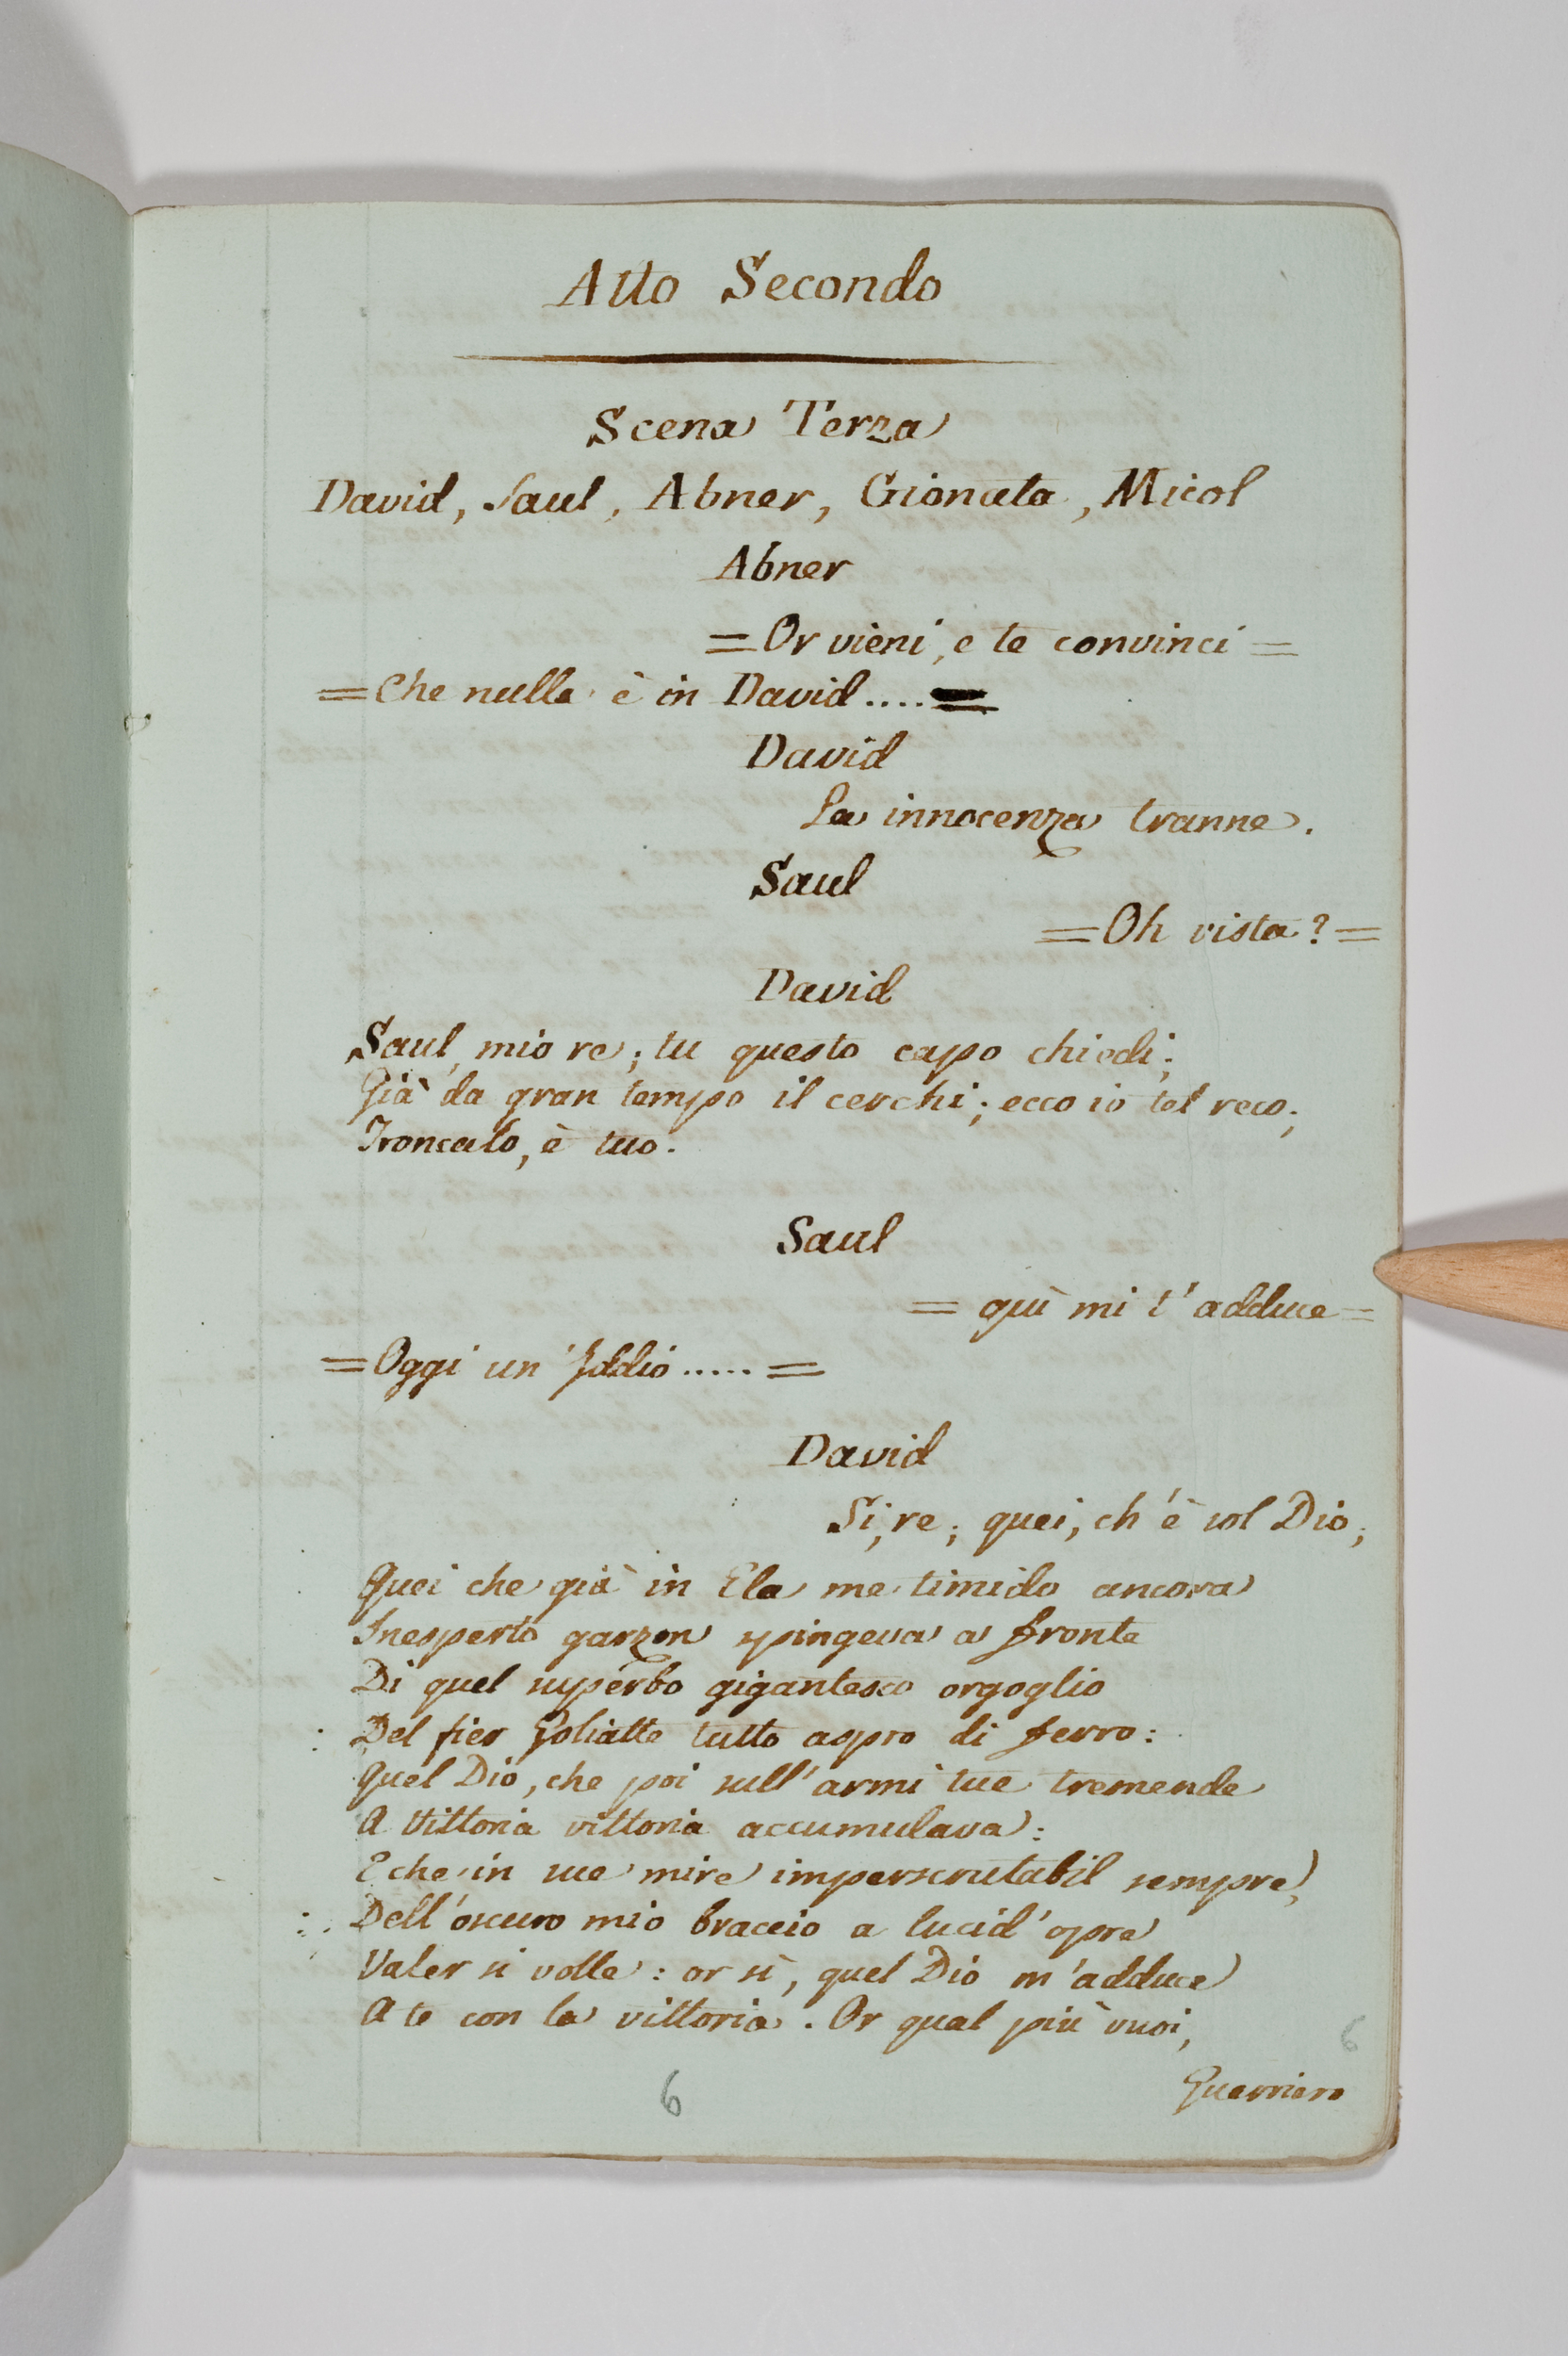 Atto Secondo
Scena Terza
David, Saul, Abner, Gionata, Micol
Abner
= Or vieni, e te convinci =
= Che nulla è in David .... =
David
La innocenza tranne.
Saul
= Oh vista? =
David
Saul, mio re; tu questo capo chiedi;
Già da gran tempo il cerchi; ecco io tel reco;
Troncalo, è tuo.
Saul
= quì mi t'adduce =
= Oggi un'Iddio ..... =
David
Si, re; quei, ch'è sol Dio;
Quei che già in Ela me timido ancora
Inesperto garzon spingeva a fronte
Di quel superbo gigantesco orgoglio
Del fier Goliatte tutto aspro di ferro:
Quel Dio, che poi sull'armi tue tremende
A Vittoria vittoria accumulava:
E che in sue mire imperscrutabil sempre,
Dell'oscuro mio braccio a lucid'opre
Valer si volle: or sì, quel Dio m'adduce
A te con la vittoria. Or qual più vuoi,
Guerriero
6
6